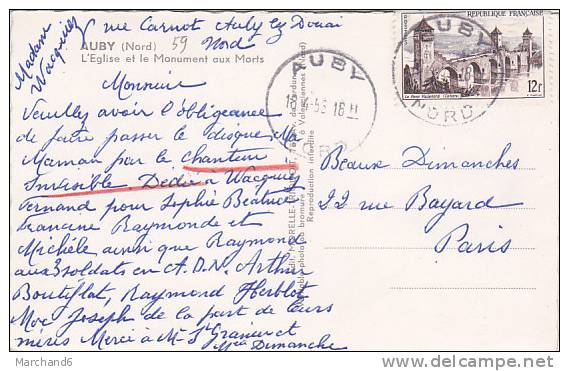 Madame
Wacquiez
rue Carnot Auby lez Douai
59 Nord
AUBY (Nord)
L'Eglise et le Monument aux Morts
Monsieur
Veuillez avoir l'obligeance
de faire passer le disque Ma
Maman par le Chanteur
Invisible Dédié à Wacquiez
Fernand pour Sophie Béatrice
Francine Raymonde et
Michèle ainsi que Raymond
aux 3 soldats en A.F.N. Arthur
Boutiflat, Raymond Herblot
Joseph de la part de leurs
mères Merci à Mr St Granier et
Mme Dimanche
AUBY
NORD
Reproduction interdite
REPUBLIQUE FRANÇAISE
Le Pont Valentré (Cahors)
12F
AUBY
NORD
Beaux Dimanches
22 rue Bayard
Paris
Marchand6
delcampe.net